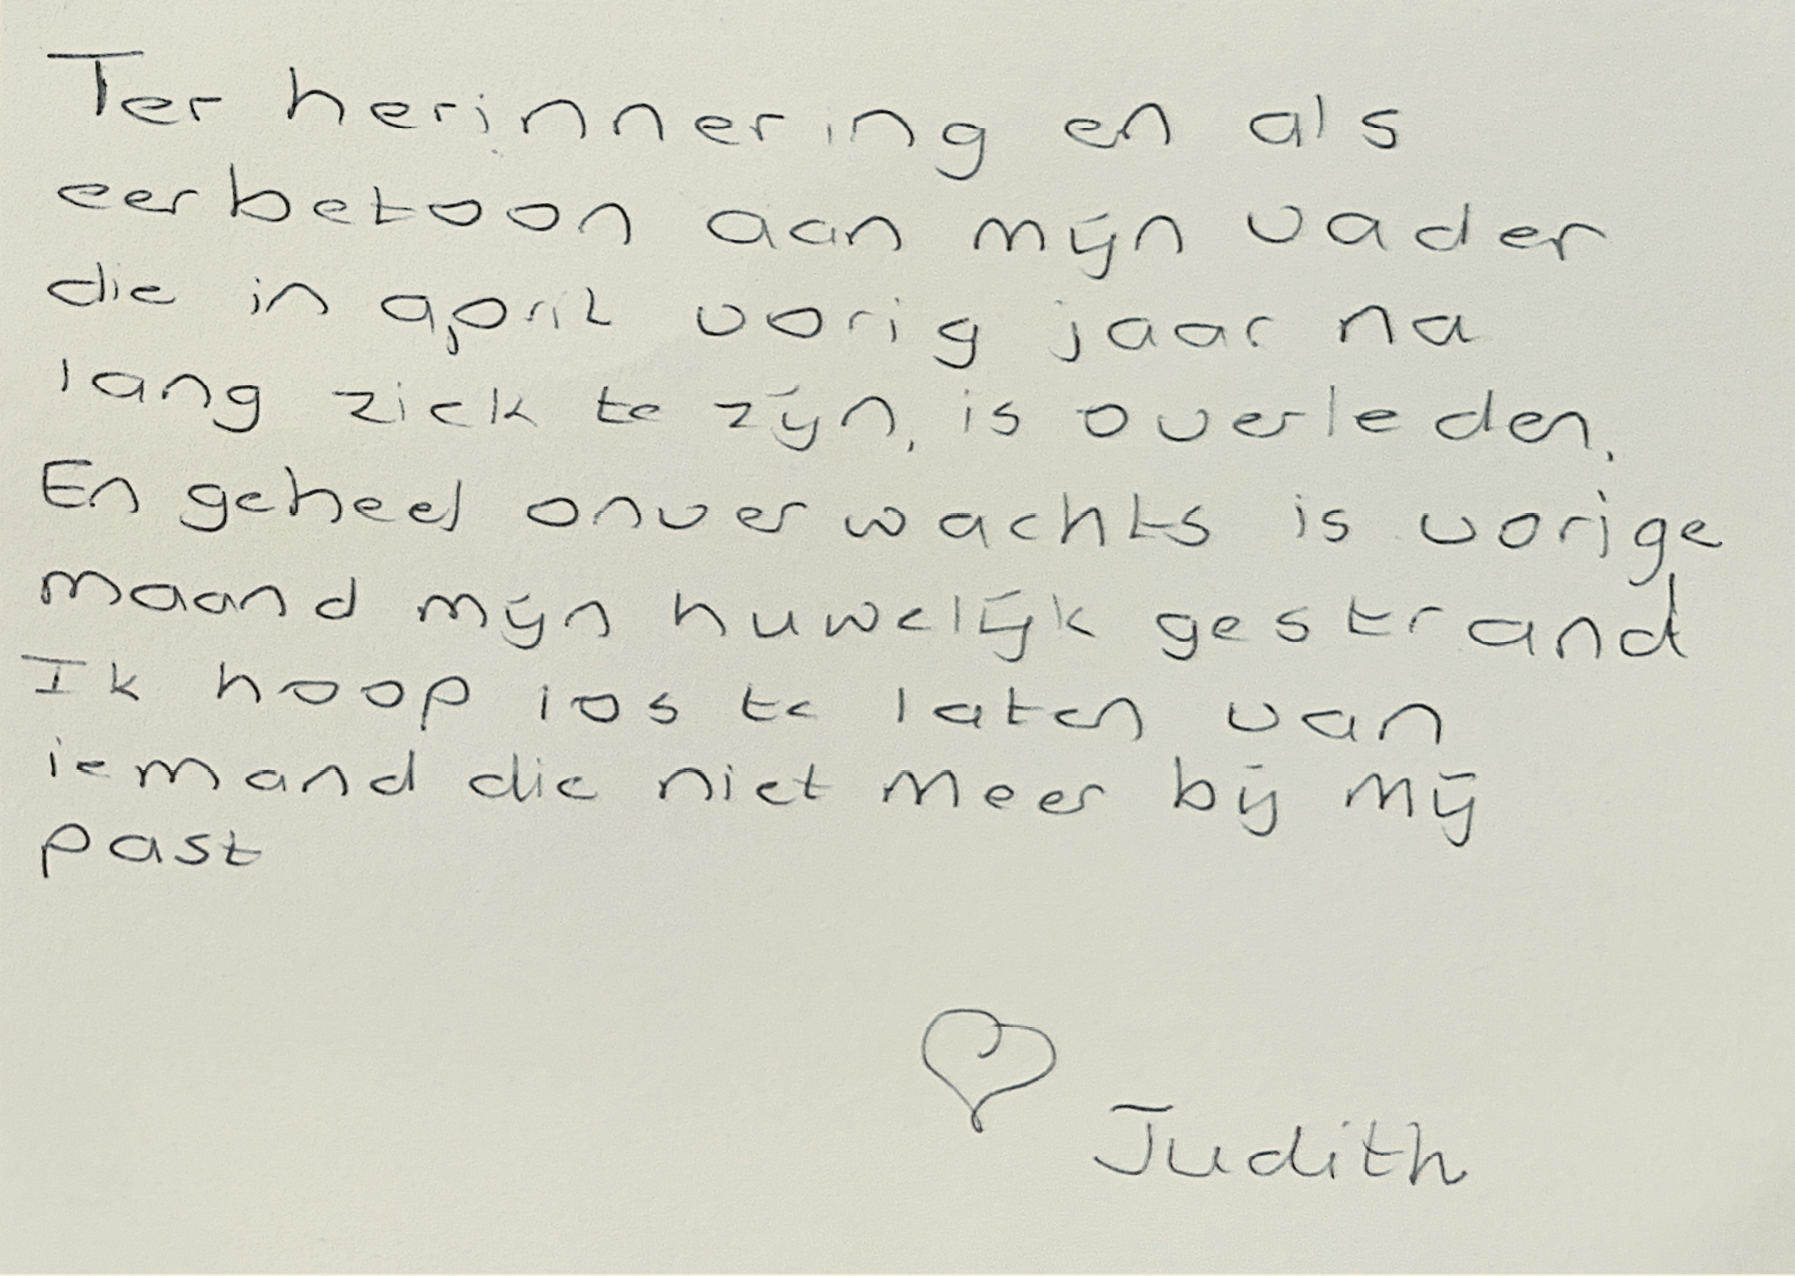 Ter herinnering en als
eerbetoon aan mijn vader
die in april vorig jaar na
lang ziek te zijn, is overleden.
En geheel onverwachts is vorige
maand mijn huwelijk gestrand
Ik hoop los te laten van
iemand die niet meer bij mij
past
Judith